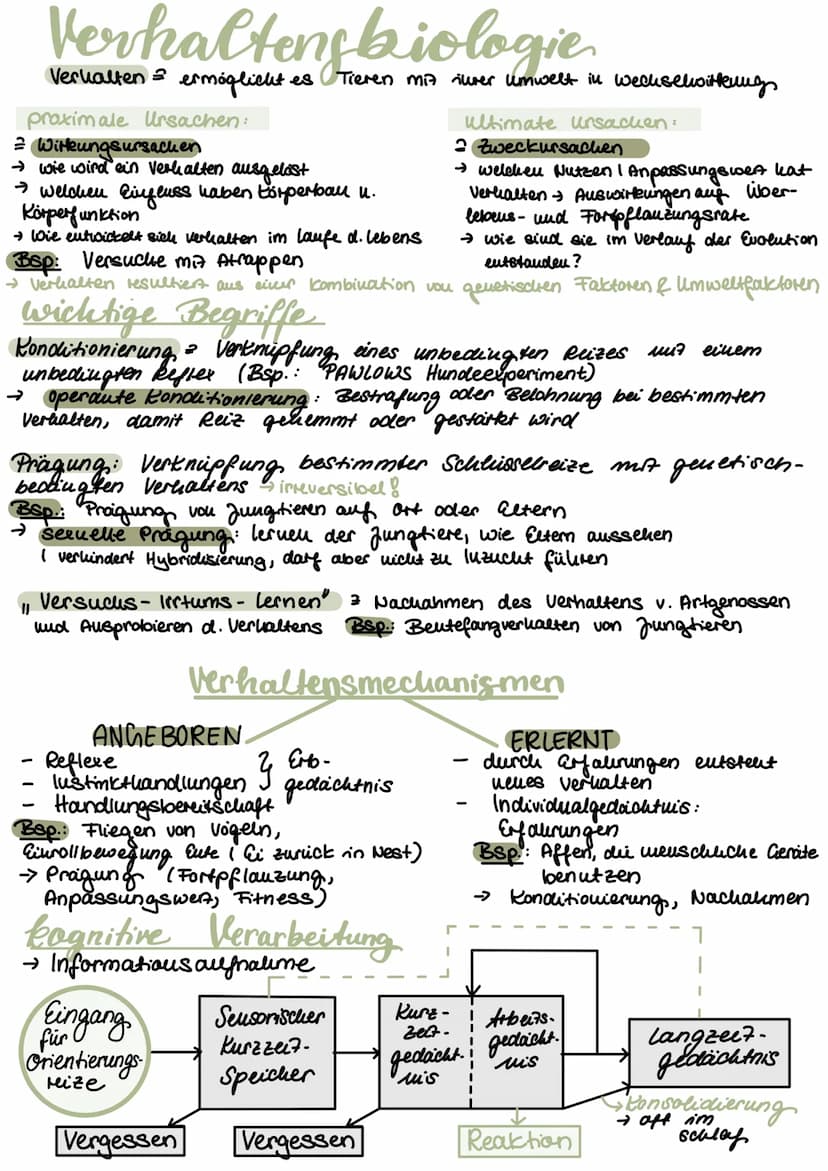 Verhaltensbiologie
Verhalten ≙ ermöglicht es Tieren mit ihrer Umwelt in Wechselwirkung
proximale Ursachen:
≙ Wirkungsursachen
→ wie wird ein Verhalten ausgelöst
→ welchen Einfluss haben Körperbau u.
Körperfunktion
→ Wie entwickelt sich Verhalten im Laufe d. Lebens
Bsp: Versuche mit Atrappen
ultimate Ursachen:
≙ Zweckursachen
→ welchen Nutzen / Anpassungswert hat
Verhalten → Auswirkungen auf Über-
lebens- und Fortpflanzungsrate
→ wie sind sie im Verlauf der Evolution
entstanden?
→ Verhalten resultiert aus einer Kombination von genetischen Faktoren & Umweltfaktoren
wichtige Begriffe
Konditionierung ≙ Verknüpfung eines unbedingten Reizes mit einem
unbedingten Reflex (Bsp.: PAWLOWS Hundeexperiment)
→ operante Konditionierung: Bestrafung oder Belohnung bei bestimmten
Verhalten, damit Reiz gehemmt oder gestärkt wird
Prägung: Verknüpfung bestimmter Schlüsselreize mit genetisch-
bedingten Verhaltens → irreversibel!
Bsp.: Prägung von Jungtieren auf Ort oder Eltern
→ sexuelle Prägung: lernen der Jungtiere, wie Eltern aussehen
( verhindert Hybridisierung, darf aber nicht zu Inzucht führen
„Versuchs-Irrtums-Lernen" ≙ Nachahmen des Verhaltens v. Artgenossen
und Ausprobieren d. Verhaltens Bsp.: Beutefangverhalten von Jungtieren
Verhaltensmechanismen
ANGEBOREN
- Reflexe
- Instinkthandlungen } Erb-
gedächtnis
- Handlungsbereitschaft
Bsp.: Fliegen von Vögeln,
Einrollbewegung Ente ( Ei zurück in Nest)
→ Prägung (Fortpflanzung,
Anpassungswert, Fitness)
ERLERNT
- durch Erfahrungen entsteht
neues Verhalten
- Individualgedächtnis:
Erfahrungen
Bsp: Affen, die menschliche Geräte
benutzen
→ Konditionierung, Nachahmen
kognitive Verarbeitung
→ Informationsaufnahme
Eingang
für
Orientierungs-
reize
Sensorischer
Kurzzeit-
Speicher
Kurz-
zeit-
gedächt-
nis
Arbeits-
gedächt-
nis
Langzeit-
gedächtnis
→ Konsolidierung
→ oft im
Schlaf
Vergessen
Vergessen
Reaktion